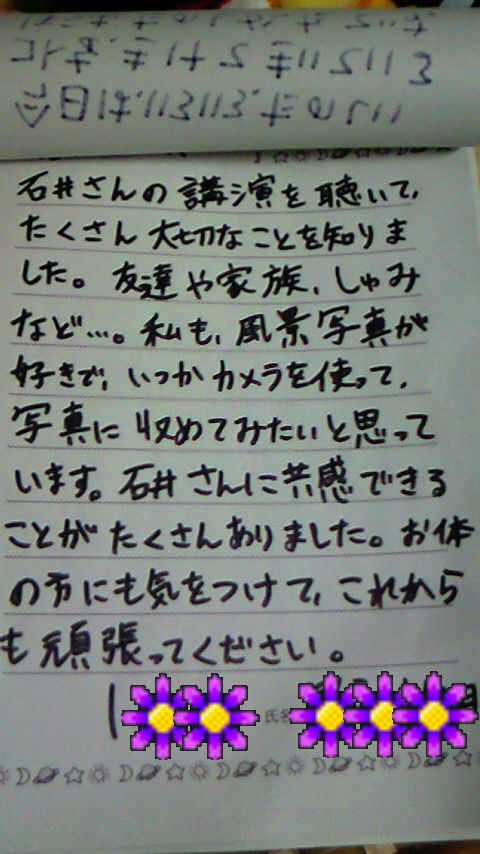 石井さんの講演を聴いて、
たくさん大切なことを知りま
した。友達や家族、しゅみ
など…。私も、風景写真が
好きで、いつかカメラを使って、
写真に収めてみたいと思って
います。石井さんに共感できる
ことがたくさんありました。お体
の方にも気をつけて、これから
も頑張ってください。
氏名